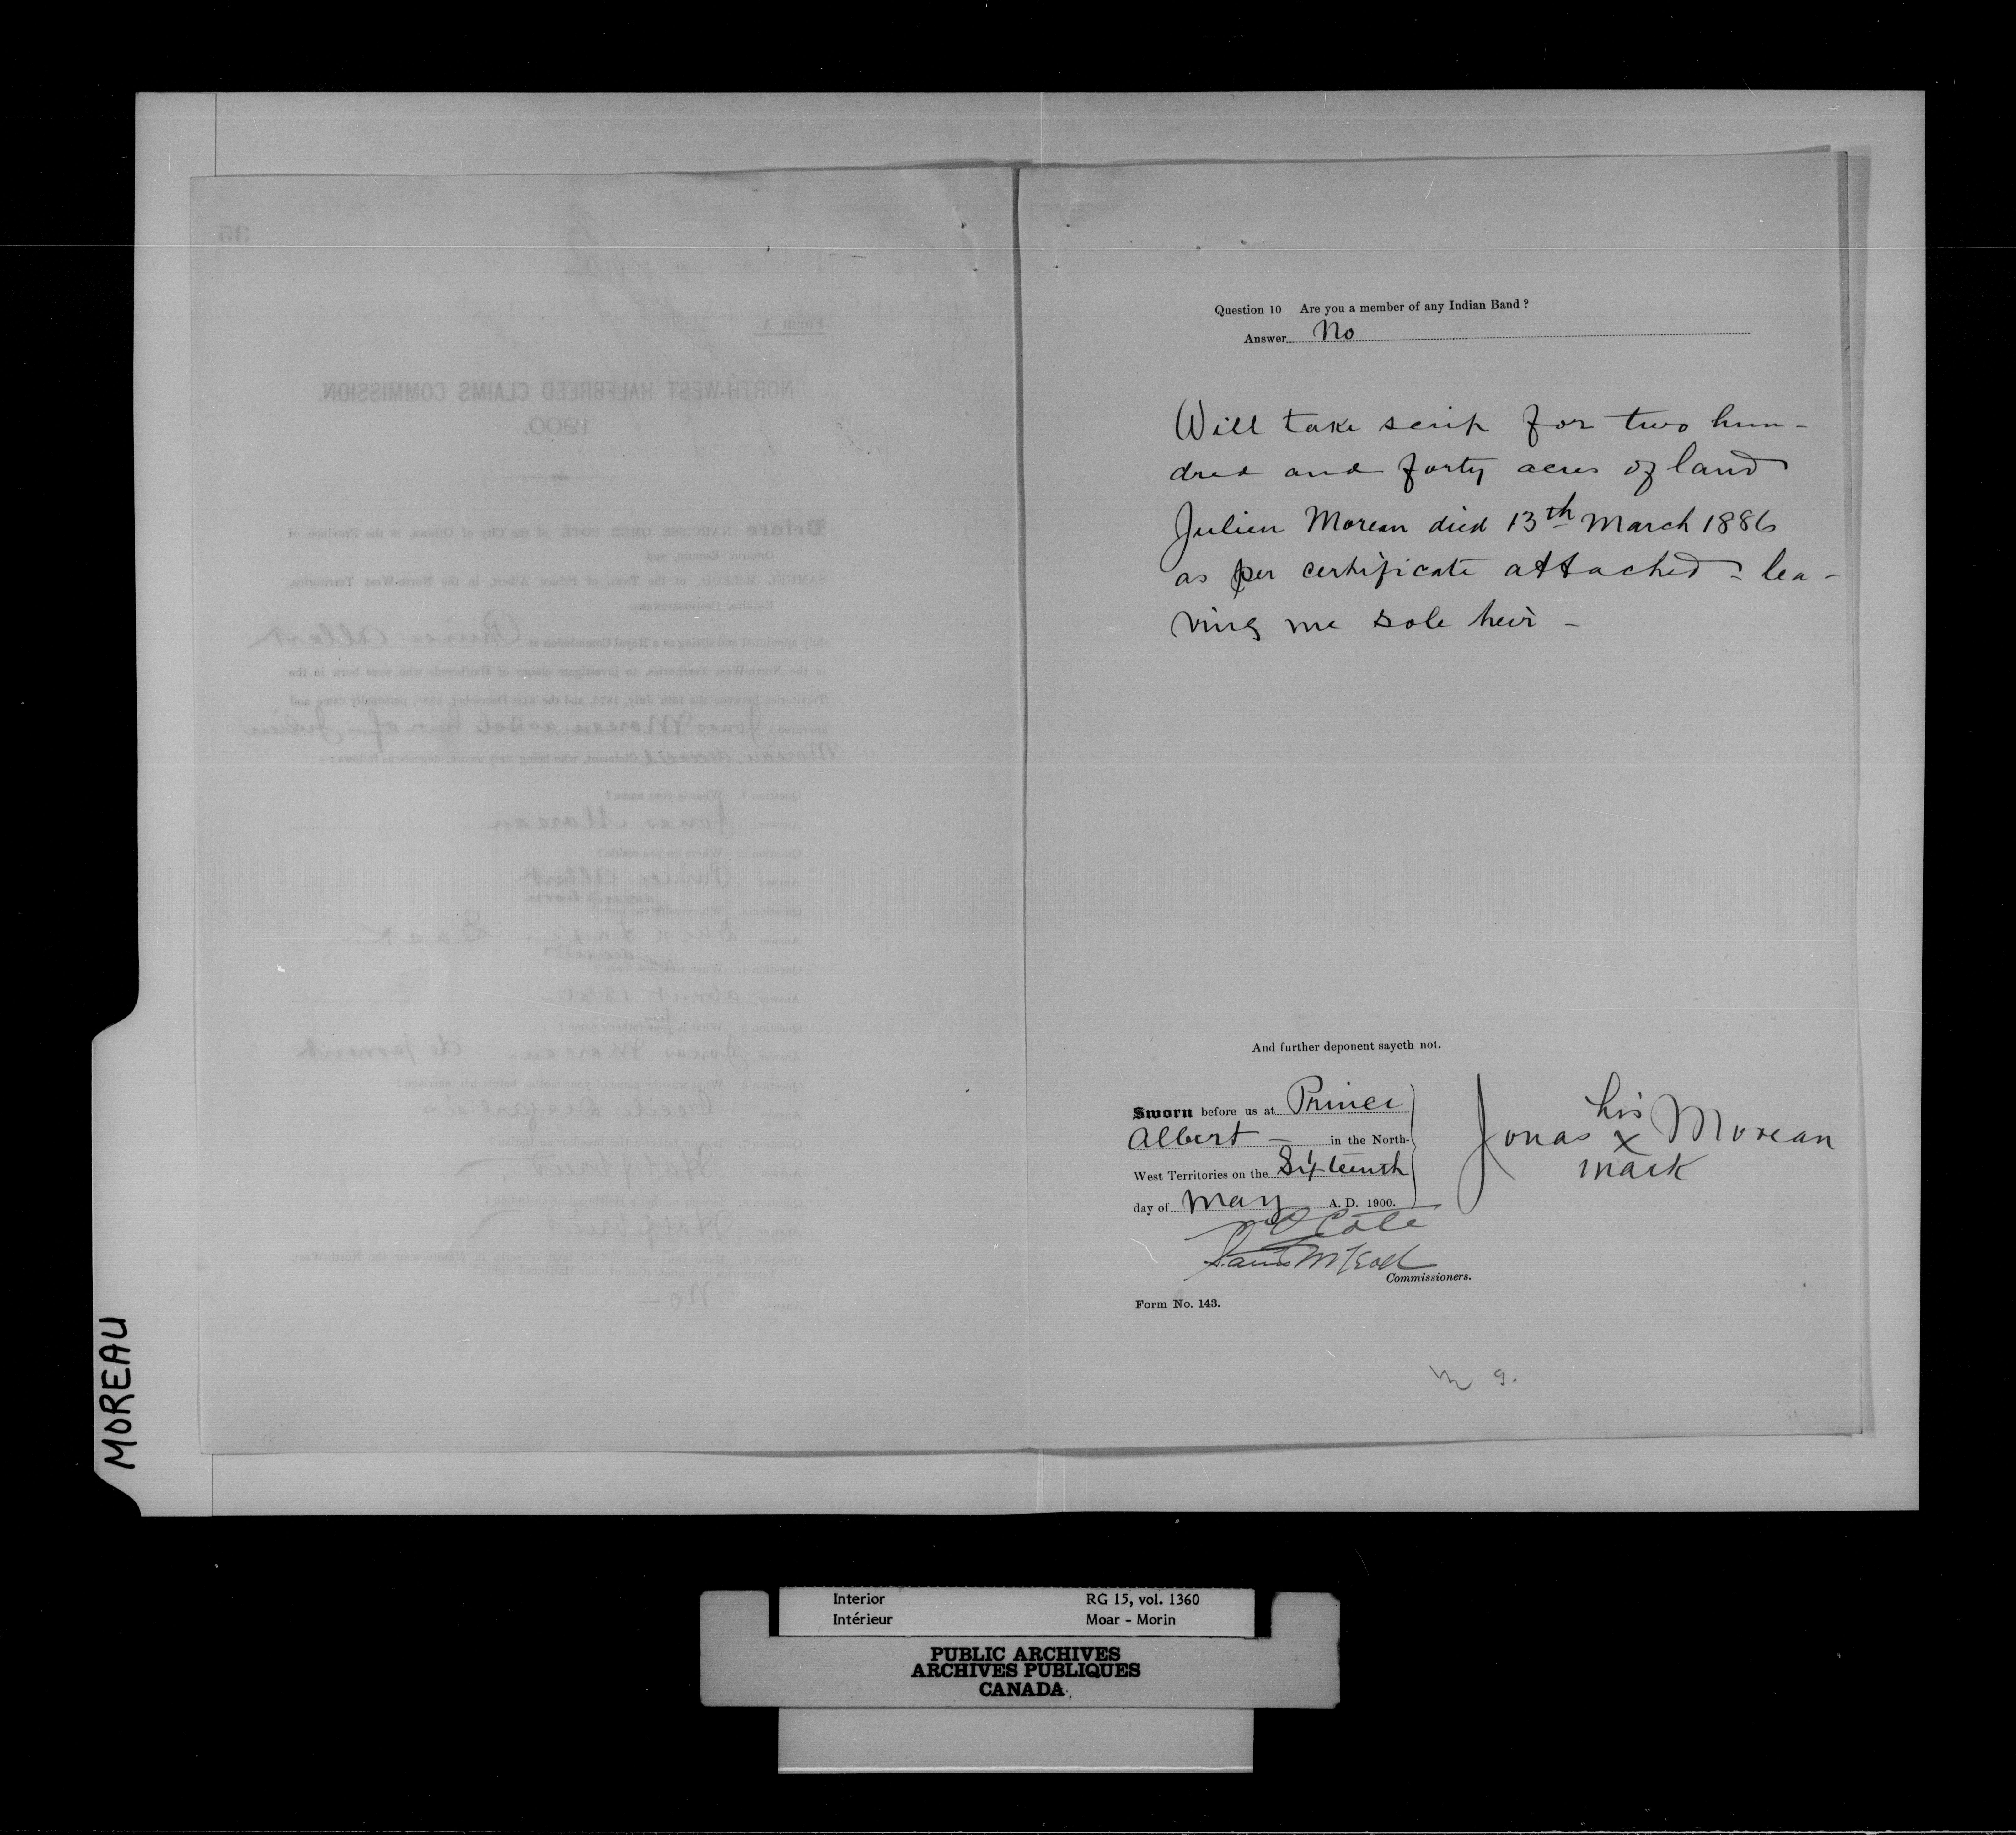 35
Form A.
NORTH-WEST HALFBREED CLAIMS COMMISSION.
1900.
Before NARCISSE OMER COTÉ, of the City of Ottawa, in the Province of
Ontario, Esquire, and
SAMUEL McLEOD, of the Town of Prince Albert, in the North-West Territories,
Esquire, Commissioners,
duly appointed and sitting as a Royal Commission at Prince Albert
in the North-West Territories, to investigate claims of Halfbreeds who were born in the
Territories between the 15th July, 1870, and the 31st December, 1885, personally came and
appeared, Jonas Moreau as sole heir of Julien
Moreau, deceased Claimant, who being duly sworn, deposes as follows:—
Question 1. What is your name?
Answer Jonas Moreau
Question 2. Where do you reside?
Answer Prince Albert
Question 3. Where
Answer Duck Lake Sask
deceased
Question 4. When
Answer about
his
Question 5. What is your father's name?
Answer Jonas Moreau deponent
Question 6. What was the name of your mother before her marriage?
Answer Cecile
Question 7. Is your father a Halfbreed or an Indian?
Answer Halfbreed
Question 8. Is your mother a Halfbreed or an Indian?
Answer Halfbreed
Question 9.
Answer No —
Question 10 Are you a member of any Indian Band?
Answer No
Will take scrip for two hun-
dred and forty acres of land
Julien Moreau died 13th March 1886
as per certificate attached - lea-
ving me sole heir -
And further deponent sayeth not.
Sworn before us at Prince
Albert — in the North-
West Territories on the Sixteenth
day of May A. D. 1900.
his
Jonas x Moreau
mark
N O Coté
Saml McLeod
Commissioners.
Form No. 143.
9.
MOREAU
Interior RG 15, vol. 1360
Intérieur Moar - Morin
PUBLIC ARCHIVES
ARCHIVES PUBLIQUES
CANADA